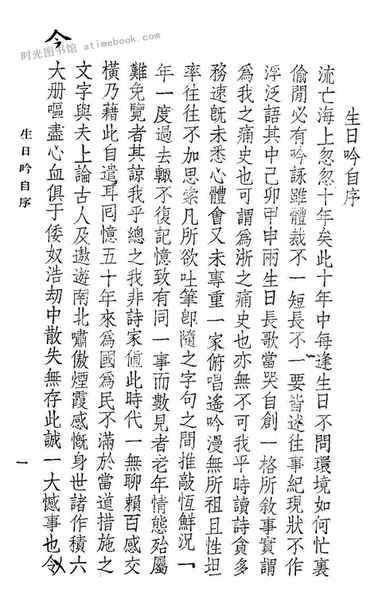 时光图书馆 atimebook.com
生日吟自序
流亡海上忽忽十年矣此十年中每逢生日不問環境如何忙裏
偷閒必有吟詠雖體裁不一短長不一要皆述往事紀現狀不作
浮泛語其中己卯甲申兩生日長歌當哭自創一格所敘事實謂
爲我之痛史也可謂爲浙之痛史也亦無不可我平時讀詩貪多
務速旣未悉心體會又未專重一家俯唱遙吟漫無所祖且性坦
率往往不加思索凡所欲吐筆卽隨之字句之間推敲恆鮮況「
年一度過去輒不復記憶致有同一事而數見者老年情態殆屬
難免覽者其諒我乎總之我非詩家値此時代一無聊賴百感交
橫乃藉此自遣耳囘憶五十年來爲國爲民不滿於當道措施之
文字與夫上論古人及遨遊南北嘯傲煙霞感慨身世諸作積六
大册嘔盡心血俱于倭奴浩劫中散失無存此誠一大憾事也今
生日吟自序
一
今